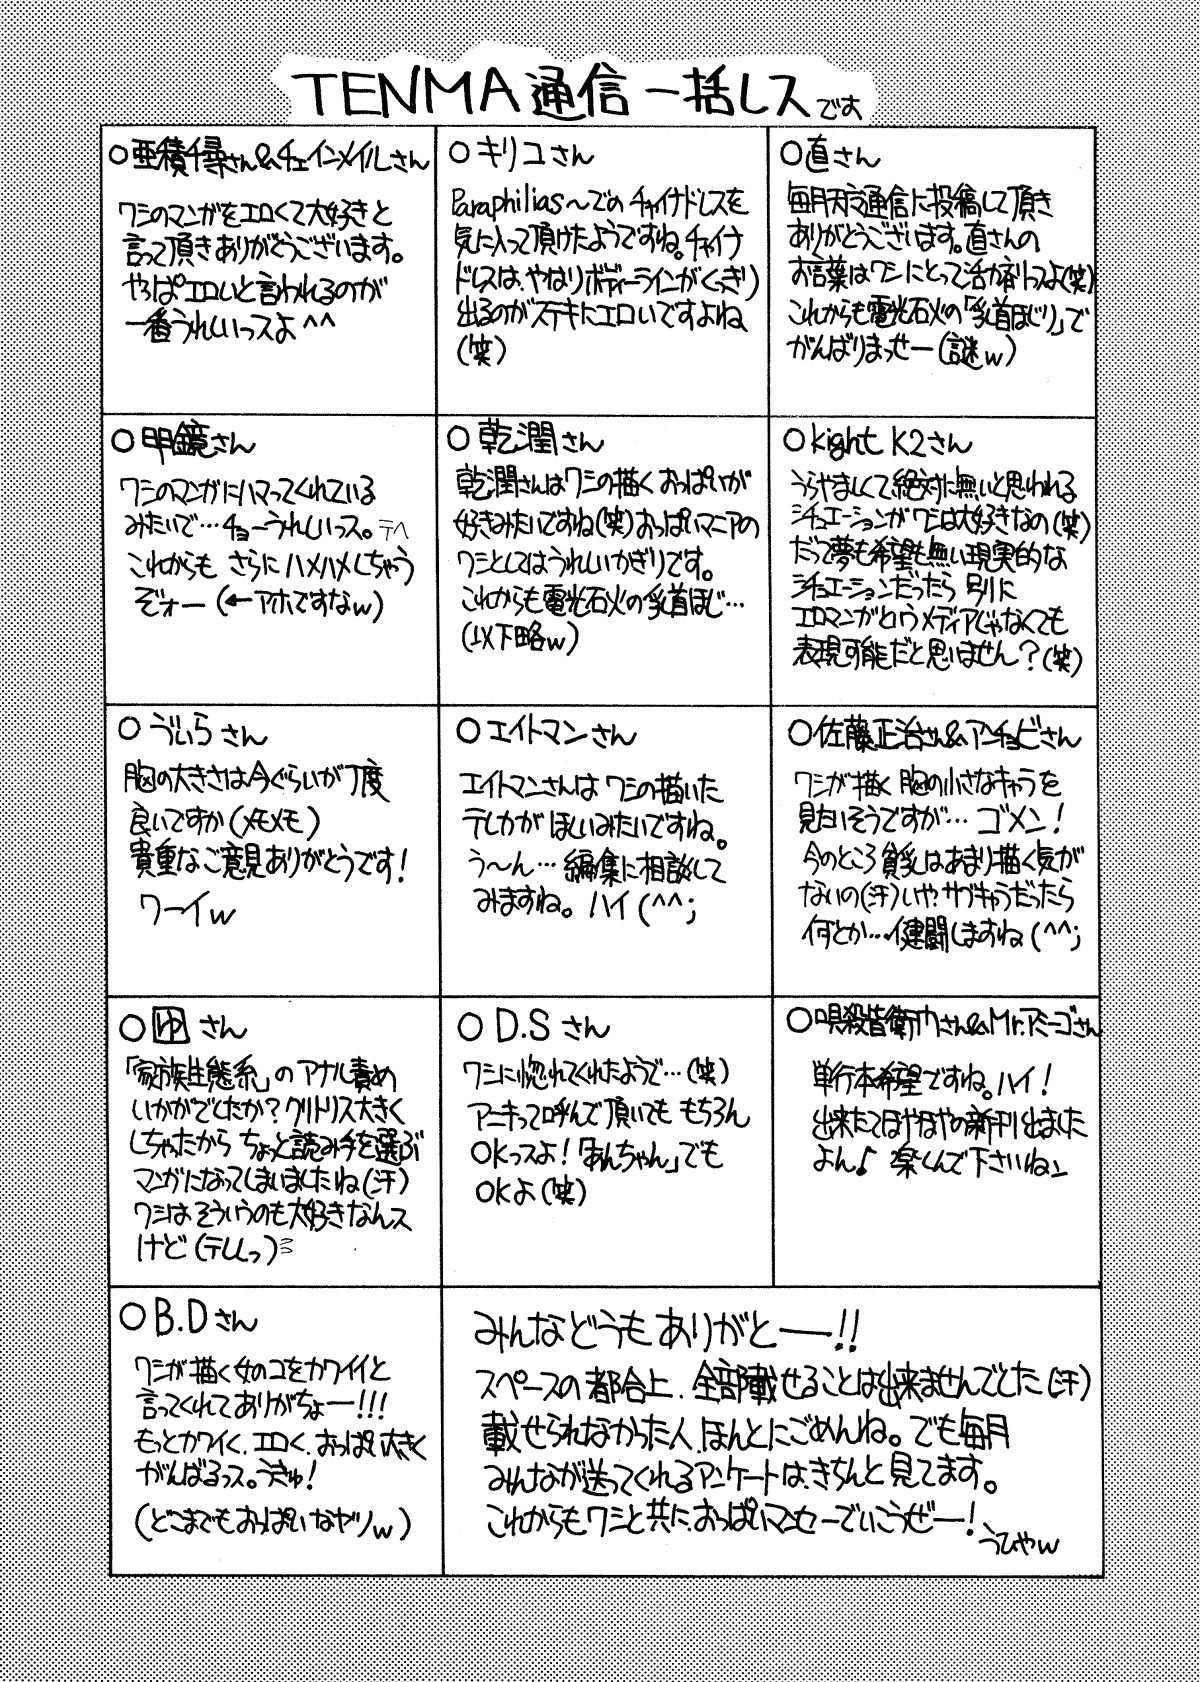 TENMA通信一括レスです
○亜積千尋さん&チェインメイルさん
ワシのマンガをエロくて大好きと
言って頂きありがとうございます。
やっぱエロいと言われるのが
一番うれしいっスよ^^
○キリコさん
Paraphilias〜でのチャイナドレスを
気に入って頂けたようですね。チャイナ
ドレスは、やはりボディーラインがくっきり
出るのがステキにエロいですよね
(笑)
○直さん
毎月天交通信に投稿して頂き
ありがとうございます。直さんの
お言葉はワシにとって活力剤っスよ(笑)
これからも電光石火の「乳首ほじり」で
がんばりまっせー(謎w)
○甲鏡さん
ワシのマンガにハマってくれている
みたいで…チョーうれしいっス。テヘ
これからも さらにハメハメしちゃう
ぞォー(←アホですなw)
○乾潤さん
乾潤さんはワシの描くおっぱいが
好きみたいですね(笑)おっぱいマニアの
ワシとしてはうれしいかぎりです。
これからも電光石火の乳首ほじ…
(以下略w)
○kight K2さん
うらやましくて絶対に無いと思われる
シチュエーションがワシは大好きなの(笑)
だって夢も希望も無い現実的な
シチュエーションだったら 別に
エロマンガというメディアじゃなくても
表現可能だと思いません?(笑)
○うぃらさん
胸の大きさは今ぐらいが丁度
良いですか(メモメモ)
貴重なご意見ありがとうです!
ワーイw
○エイトマンさん
エイトマンさんは ワシの描いた
テレカが ほしいみたいですね。
う〜ん… 編集に相談して
みますね。ハイ(^^;
○佐藤正治さん&アンチョビさん
ワシが描く 胸の小さなキャラを
見たいそうですが… ゴメン!
今のところ貧乳はあまり描く気が
ないの(汗)いや、サブキャラだったら
何とか…健闘しますね(^^;
○ゆさん
「家族生態系」のアナル責め
いかがでしたか?クリトリス大きく
しちゃったから ちょっと読み手を選ぶ
マンガになってしまいましたね(汗)
ワシは そういうのも大好きなんス
けど(テレレっ)
○D.Sさん
ワシに惚れてくれたようで…(笑)
アニキって呼んで頂いても もちろん
OKっスよ!「あんちゃん」でも
OKよ(笑)
さん&Mr.アミーゴさん
単行本希望ですね。ハイ!
出来たてほやほやの新刊出ました
よん♪ 楽しんで下さいね
○B.Dさん
ワシが描く女のコをカワイイと
言ってくれてありがちょー!!!
もっとカワイく、エロく、おっぱい大きく
がんばるっス。うきゅ!
(どこまでもおっぱいなヤツw)
みんなどうもありがとー!!
スペースの都合上、全部載せることは出来ませんでした(汗)
載せられなかった人、ほんとにごめんね。でも毎月
みんなが送ってくれるアンケートは、きちんと見てます。
これからもワシと共に、おっぱいマンセーでいこうぜー!
うひゃw